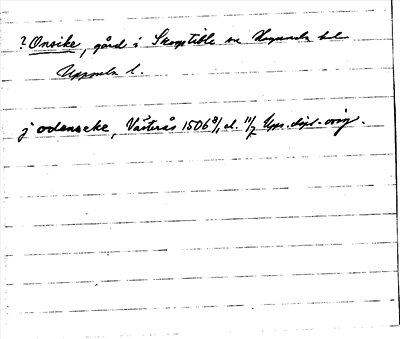 ? Onsike, gård i Skogstible sn Hagunda hd
Uppsala l.
j odensseke, Västerås 1506 8/1 el. 11/7 Upps. dipl. orig.